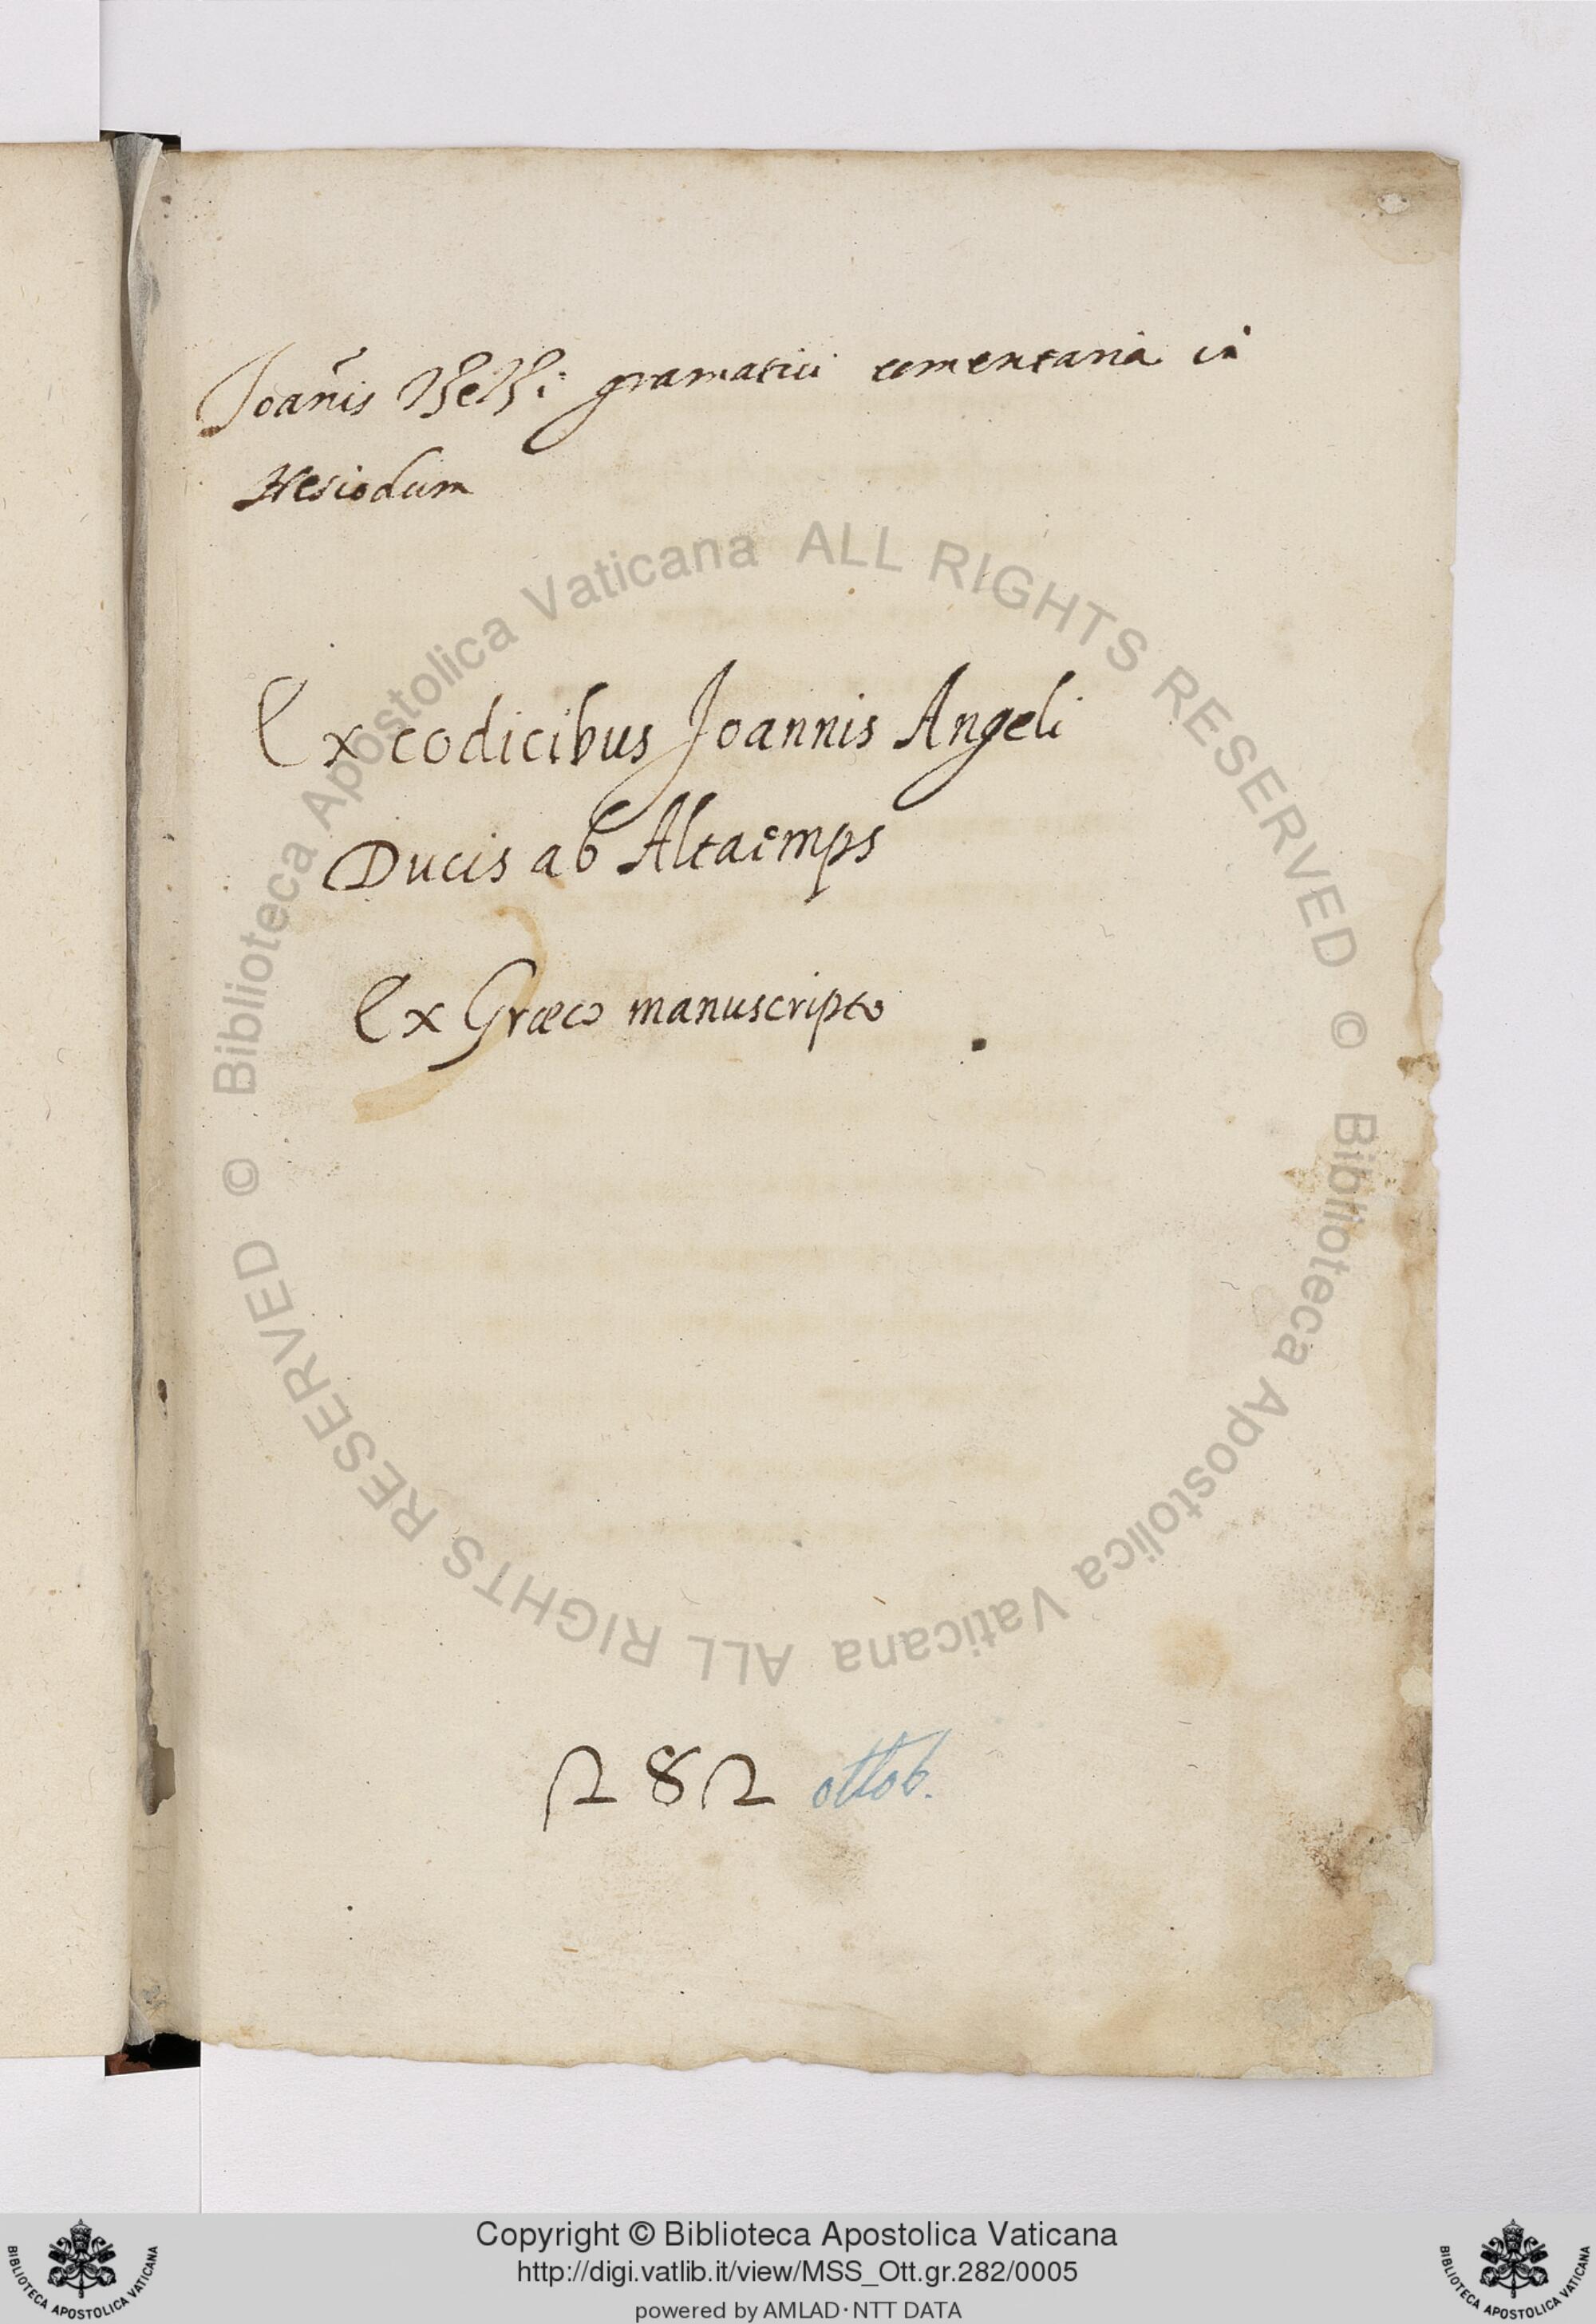 Ioan̄is Thethi gramatici comentaria in
Hesiodum
Ex codicibus Joannis Angeli
Ducis ab Altaemps
Ex Græco manuscripto
282 ottob.
© Biblioteca Apostolica Vaticana ALL RIGHTS RESERVED
© Biblioteca Apostolica Vaticana ALL RIGHTS RESERVED
Copyright © Biblioteca Apostolica Vaticana
http://digi.vatlib.it/view/MSS_Ott.gr.282/0005
powered by AMLAD·NTT DATA
BIBLIOTECA APOSTOLICA VATICANA
BIBLIOTECA APOSTOLICA VATICANA